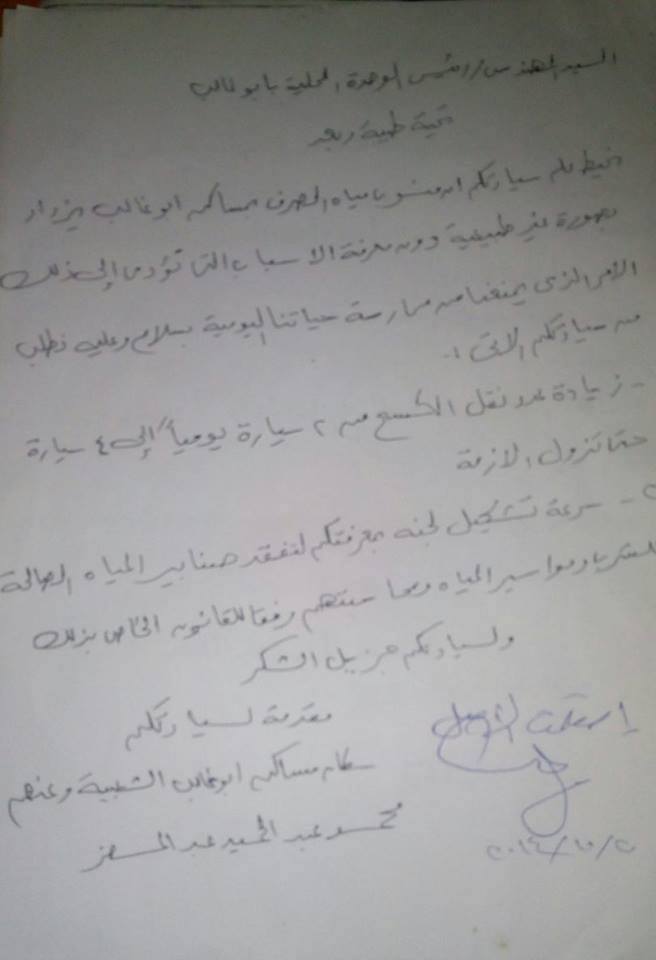 السيد المهندس / رئيس الوحدة المحلية بابو غالب
تحية طيبة وبعد
نحيط علم سيادتكم ان منسوب مياه الصرف بمساكن ابو غالب يزداد
بصورة غير طبيعية دون معرفة الاسباب التى تؤدى إلى ذلك
الأمر الذى يمنعنا من ممارسة حياتنا اليومية بسلام وعليه نطلب
من سيادتكم الاتى :
- زيادة عدد نقل الكسح من ٢ سيارة يومياً إلى ٤ سيارة
حتا تزول الازمة
- سرعة تشكيل لجنه بمعرفتكم لتفقد صنابير المياه الصالحة
للشرب ومواسير المياه ومحاسبتهم وفقا للقانون الخاص بذلك
ولسيادتكم جزيل الشكر
مقدمة لسيادتكم
سكان مساكن ابو غالب الشعبية وعنهم
محمد عبد الحميد عبد
إستلمت الأصل